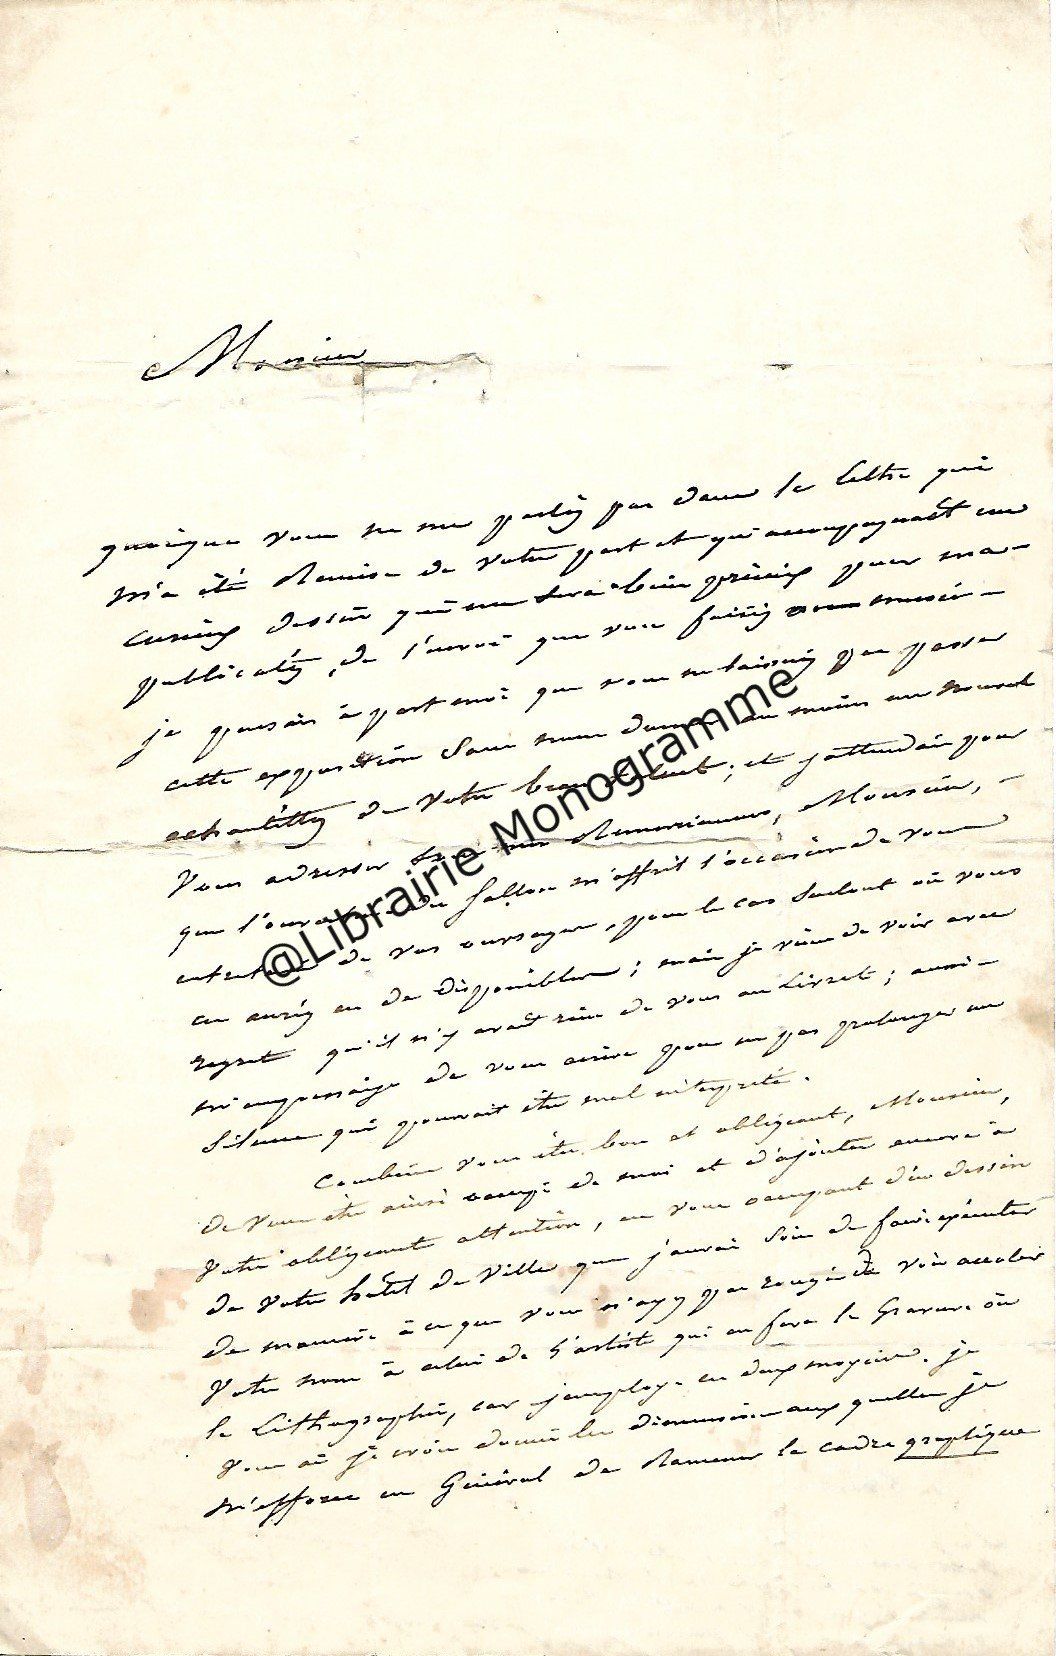 Monsieur
quoique vous ne me parliez pas dans la lettre qui
m'a été Remise de votre part et qui accompagnait un
curieux dessin qui me sera bien précieux pour ma
publication, de l'envoi que vous faisiez au musée
je pensais à part moi que vous ne laissiez pas passer
cette exposition sans nous donner au moins un nouvel
echantillon de votre beau talent; et j'attendais pour
Vous adresser mes Remerciemens, Monsieur,
que l'ouverture du Sallon m'offrit l'occasion de vous
entretenir de vos ouvrages, pour le cas surtout où vous
en auriez eu de disponibles; mais je viens de voir avec
regret qu'il n'y avait rien de vous au Livret; aussi
m'empressai-je de vous ecrire pour ne pas prolonger un
Silence qui pourrait être mal interprété.
Combien vous êtes bon et obligeant, Monsieur,
de Vous être ainsi occupé de moi et d'ajouter encore à
Votre obligeante attention, en vous occupant d'un dessin
de votre hôtel de Ville que j'aurai Soin de faire exécuter
de manière à ce que vous n'ayez pas rougir de voir accoler
Votre nom à celui de l'artiste qui en fera la Gravure ou
la Lithographie, car j'employe ces deux moyens. je
Vous ai je crois donné les dimensions aux quelles je
m'efforce en Général de Ramener le cadre graphique
@Librairie Monogramme